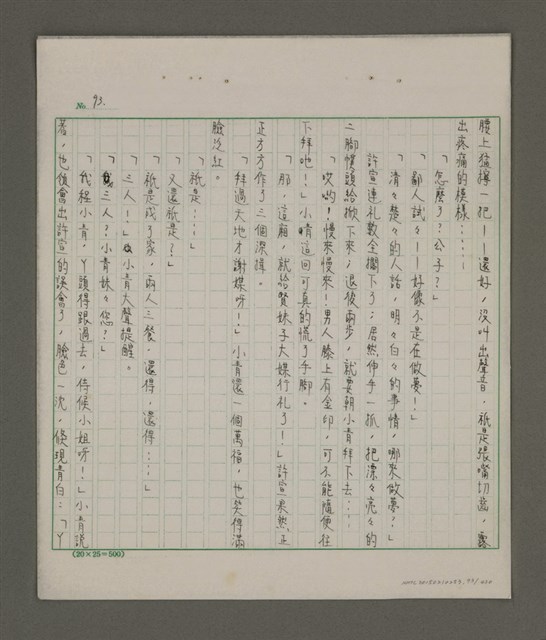 No. 93.
腰上猛擰一把——還好，沒叫出聲音，祇是張嘴切齒，露
出疼痛的模樣……
「怎麼了？公子？」
「鄙人試々——好像不是在做夢！」
「清々楚々的人話，明々白々的事情，哪來做夢？」
許宣連礼數全擱下了；居然伸手一抓，把漂々亮々的
二腳幞頭給掀下來；退後兩步，就要朝小青拜下去……
「哎喲！慢來慢來！男人膝上有金印，可不能隨便往
下拜吔！」小晴這回可真的慌了手腳。
「那，這廂，就給贊妹子大媒行礼了！」許宣果然正
正方方作了三個深揖。
「拜過天地才謝媒呀！」小青還一個萬福，也笑得滿
臉泛紅。
「祇是……」
「又還祇是？」
「祇是成了家，兩人三餐，還得，還得……」
「三人！」小青大聲提醒。
「三人？小青妹々您？」
「我程小青，丫頭得跟過去，侍候小姐呀！」小青說
著，也領會出許宣的誤會了，臉色一沈，倏現青白：「丫
(20×25=500)